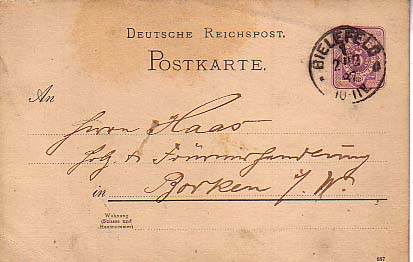 DEUTSCHE REICHSPOST.
POSTKARTE.
BIELEFELD
An
Herrn Haas
Holz & Fournierhandlung
in Borken i/W.
Wohnung
(Strasse und
Hausnummer)